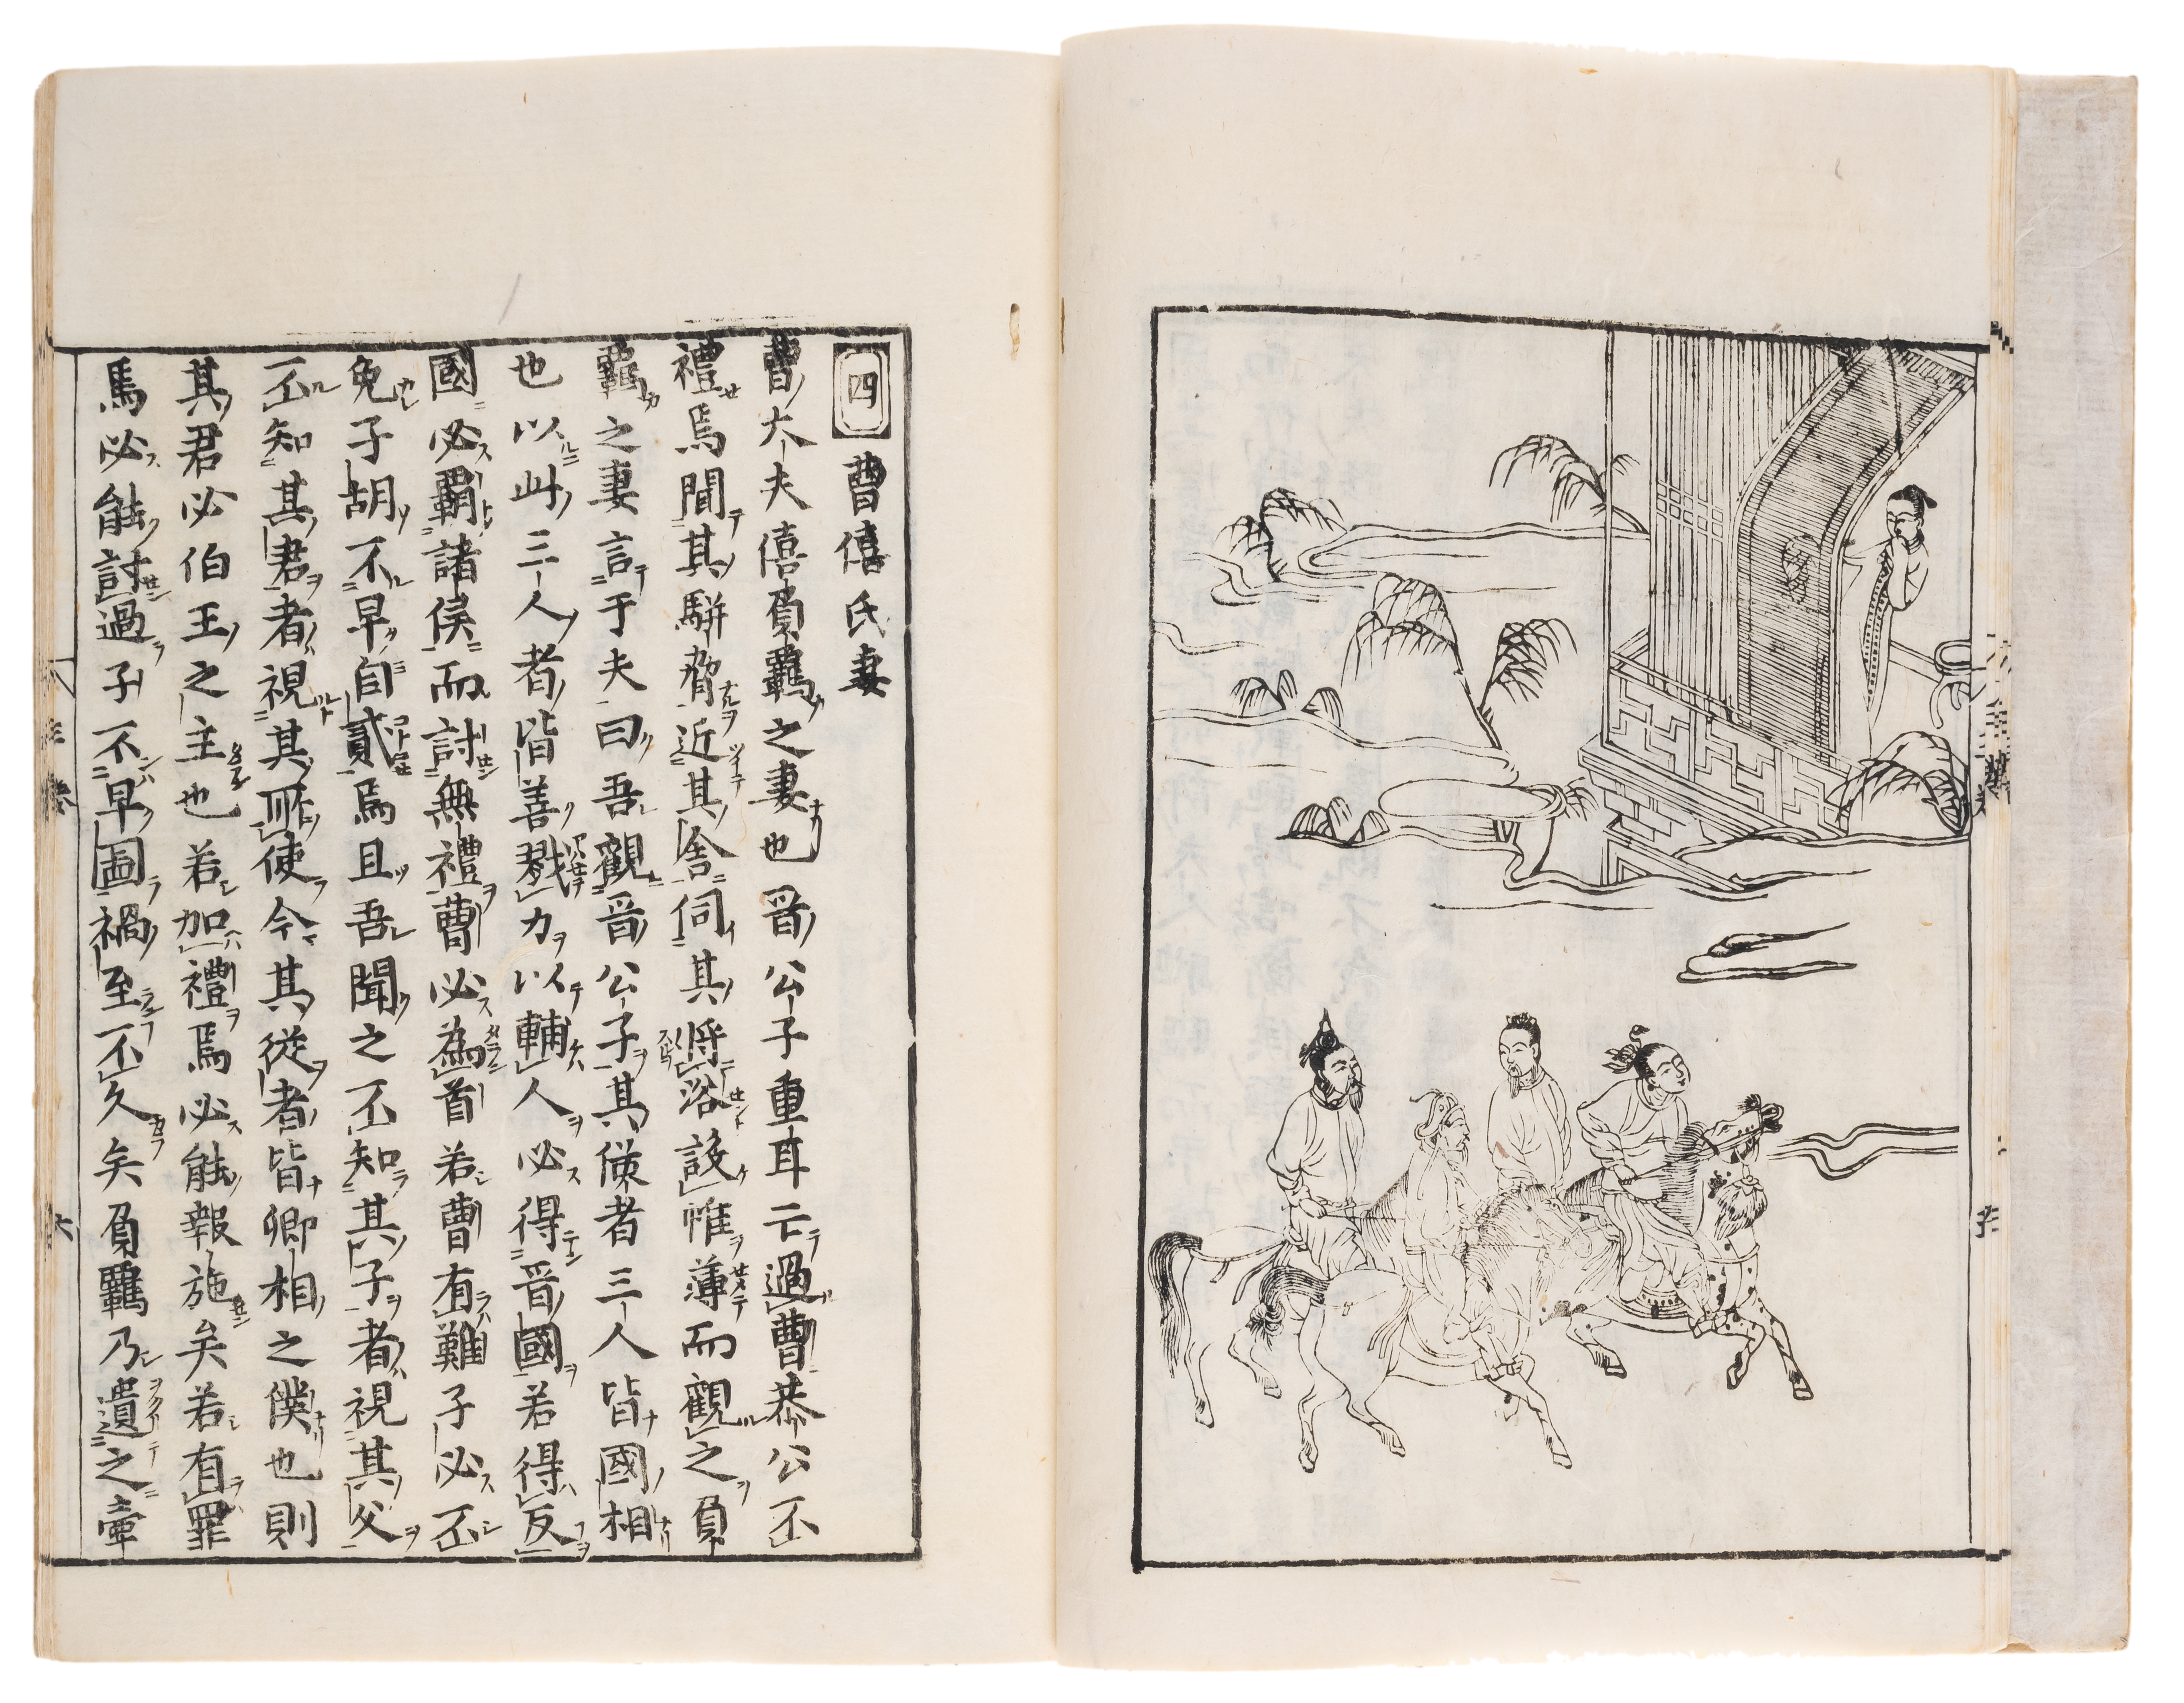 四 曹僖氏妻
曹大夫僖負羈之妻也晉公子重耳亡過曹恭公不
禮焉聞其駢脅近其舍伺其將浴設帷薄而觀之負
羈之妻言于夫曰吾觀晉公子其從者三人皆國相
也以此三人者皆善戮力以輔人必得晉國若得反
國必覇諸侯而討無禮曹必為首若曹有難子必不
免子胡不早自貳焉且吾聞之不知其子者視其父
不知其君者視其所使今其從者皆卿相之僕也則
其君必伯王之主也若加禮焉必能報施矣若有罪
焉必能討過子不早圖禍至不久矣負羈乃遺之壷